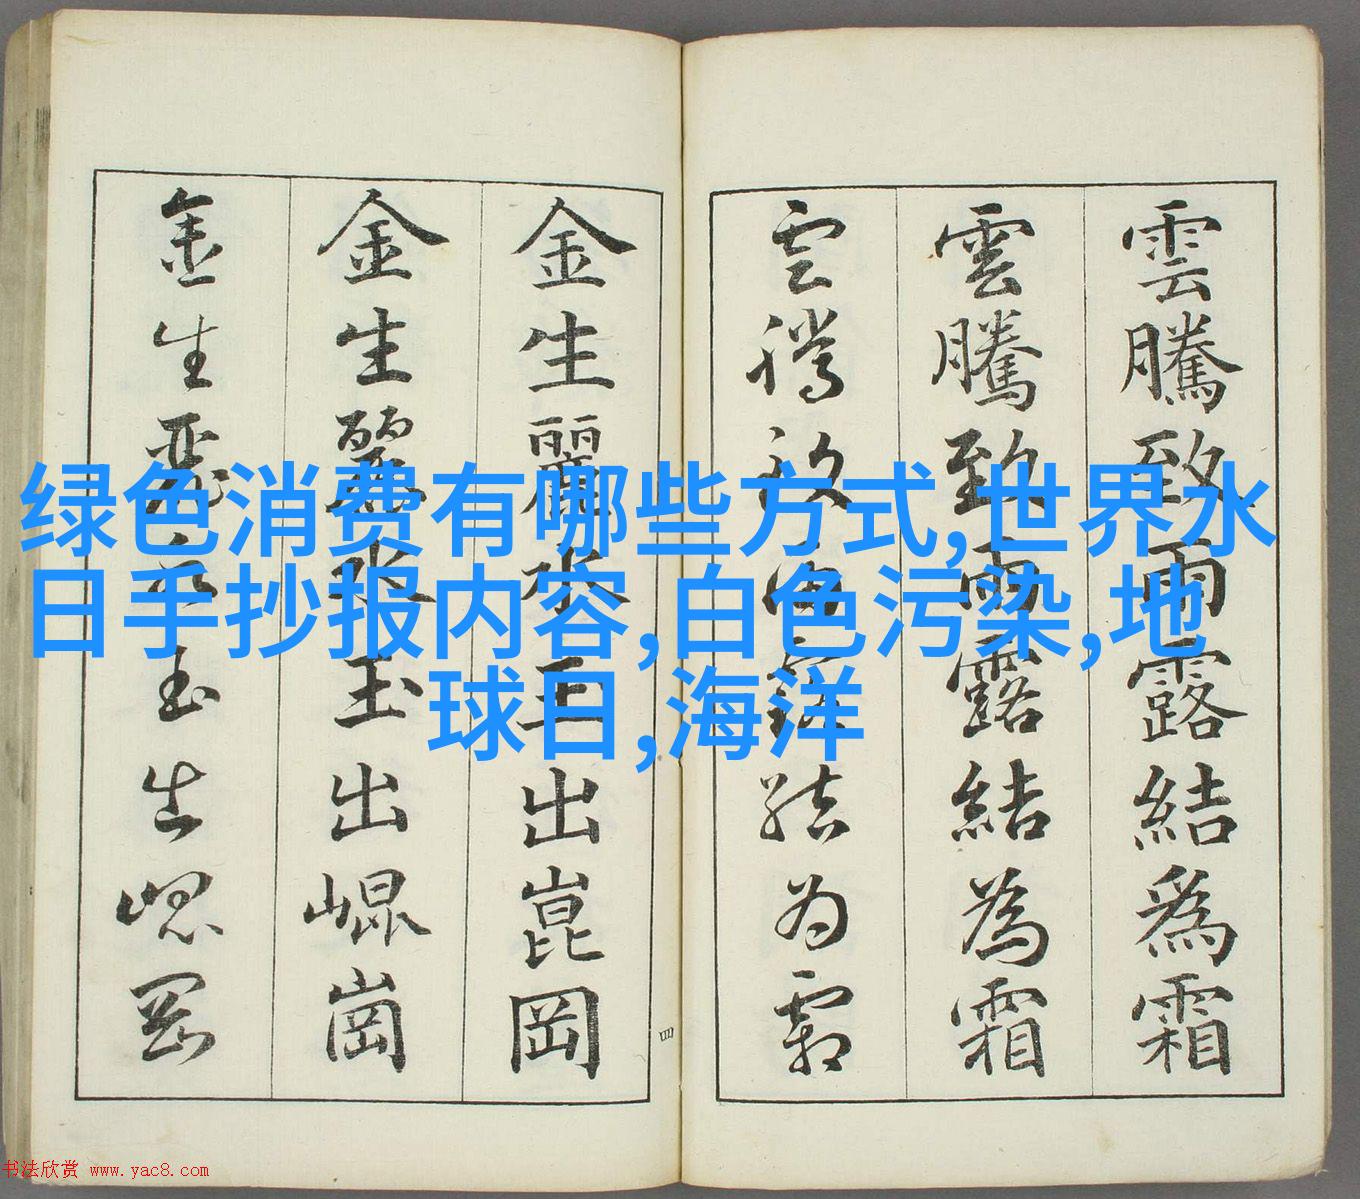 雲騰致雨露結爲霜
雲騰致雨露結為霜
雲騰致雨露結为霜
金生麗水玉出崑岡
金生麗水玉出崐崗
金生麗水玉出崐岡
四
绿色消费有哪些方式,世界水
日手抄报内容,白色污染,地
球日,海洋
书法欣赏 www.yac8.com